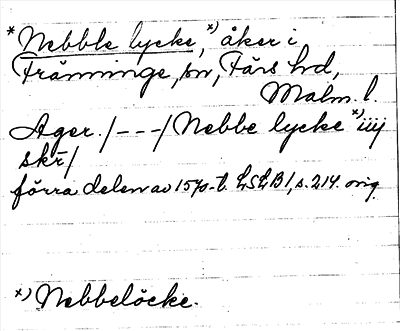 * Nebble lycke,ˣ⁾ åker i
Tränninge, sn, Färs hd,
Malm. l.
Ager. /---/ Nebbe lycke ˣ⁾ iiij
skr̄/
förra delen av 1570-t. LSLB1, s. 214. orig.
ˣ⁾ Nebbelöcke.